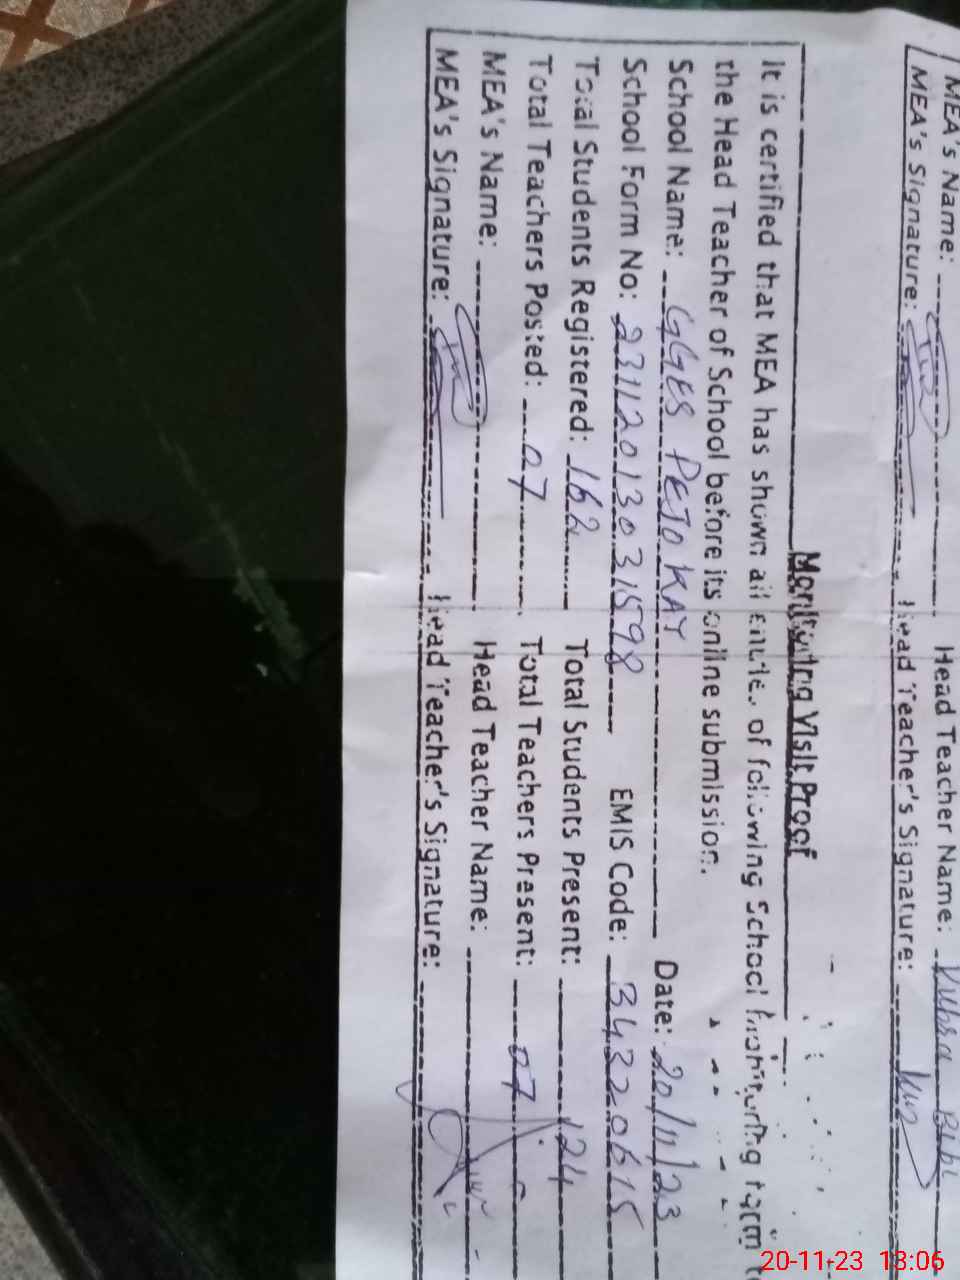 MEA's Name: Head Teacher Name: Bibi
MEA's Signature: Head Teacher's Signature:
Monitoring Visit Proof
It is certified that MEA has shown all of following School Monitoring farm
the Head Teacher of School before its online submission.
School Name: GGES PEJO KAY Date: 20/11/23
School Form No: 23112013031598 EMIS Code: 34320615
Total Students Registered: 162 Total Students Present: 124
Total Teachers Posted: 07 Total Teachers Present: 07
MEA's Name: Head Teacher Name:
MEA's Signature: Head Teacher's Signature:
20-11-23 13:06